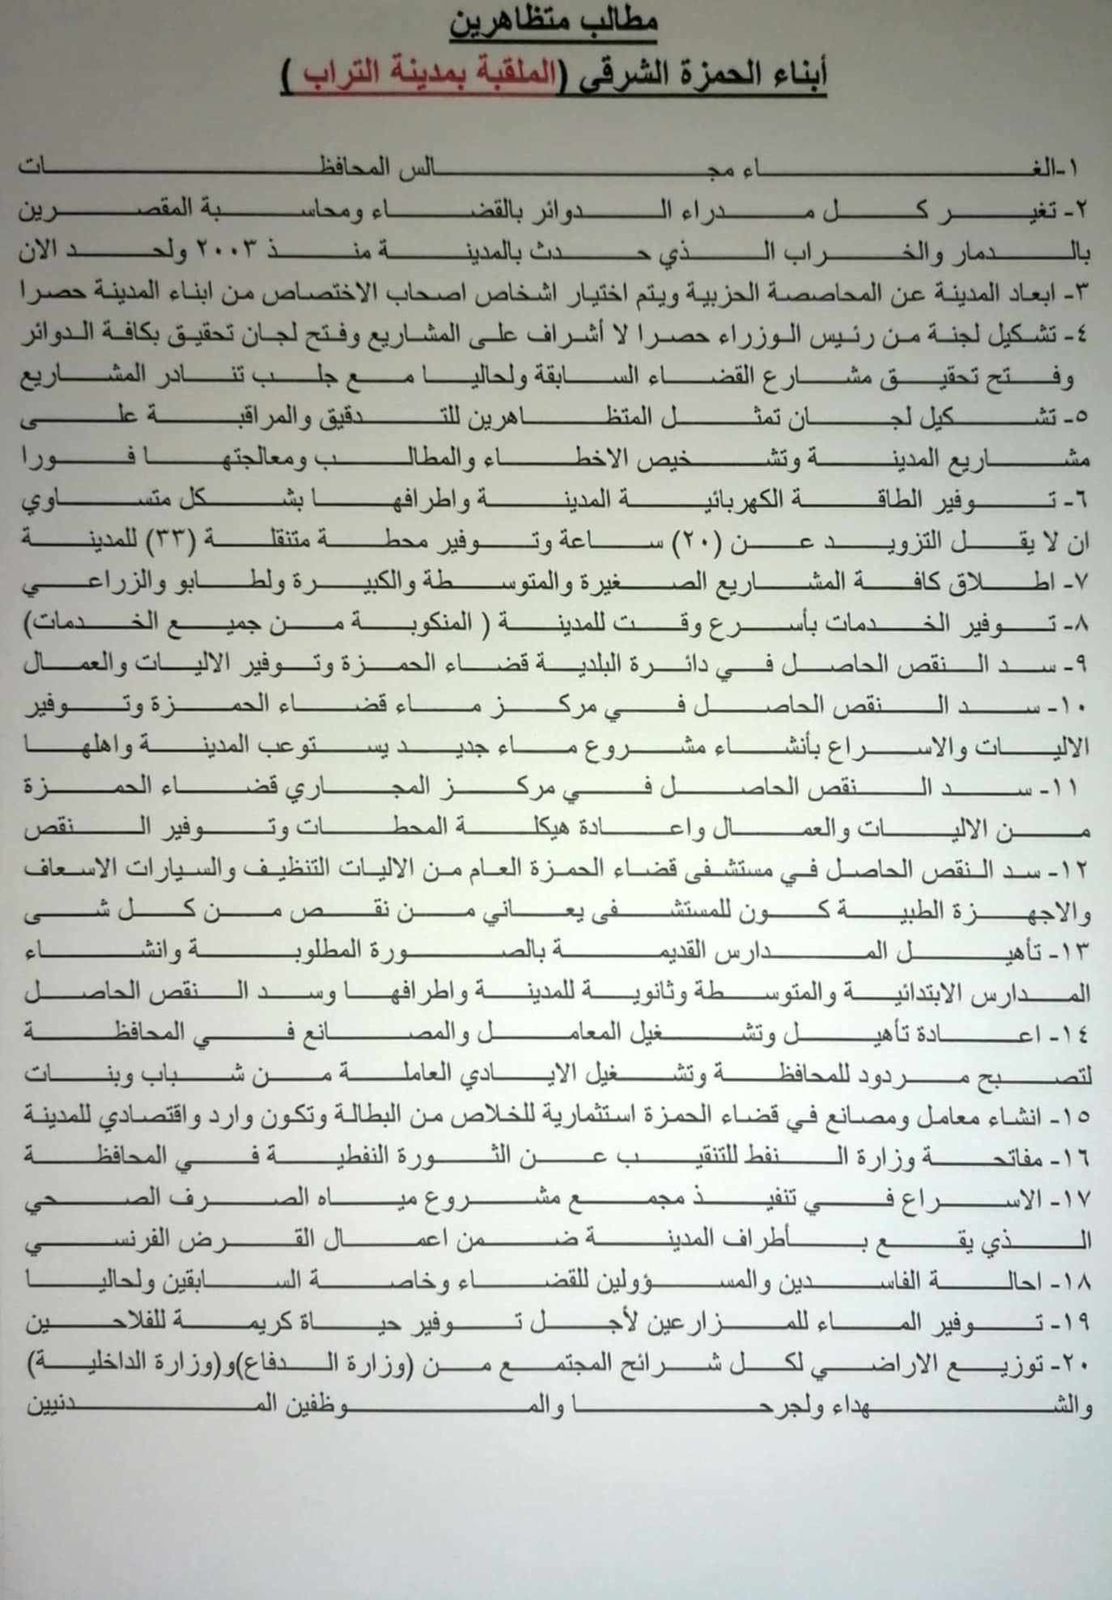 مطالب متظاهرين
أبناء الحمزة الشرقي (الملقبة بمدينة التراب )
١-الغاء مجالس المحافظات
٢- تغير كل مدراء الدوائر بالقضاء ومحاسبة المقصرين
بالدمار والخراب الذي حدث بالمدينة منذ ٢٠٠٣ ولحد الان
٣- ابعاد المدينة عن المحاصصة الحزبية ويتم اختيار اشخاص اصحاب الاختصاص من ابناء المدينة حصرا
٤- تشكيل لجنة من رئيس الوزراء حصرا لا أشراف على المشاريع وفتح لجان تحقيق بكافة الدوائر
وفتح تحقيق مشارع القضاء السابقة ولحاليا مع جلب تنادر المشاريع
٥- تشكيل لجان تمثل المتظاهرين للتدقيق والمراقبة على
مشاريع المدينة وتشخيص الاخطاء والمطالب ومعالجتها فورا
٦- توفير الطاقة الكهربائية المدينة واطرافها بشكل متساوي
ان لا يقل التزويد عن (٢٠) ساعة وتوفير محطة متنقلة (٣٣) للمدينة
٧- اطلاق كافة المشاريع الصغيرة والمتوسطة والكبيرة ولطابو والزراعي
٨- توفير الخدمات بأسرع وقت للمدينة ( المنكوبة من جميع الخدمات)
٩- سد النقص الحاصل في دائرة البلدية قضاء الحمزة وتوفير الاليات والعمال
١٠- سد النقص الحاصل في مركز ماء قضاء الحمزة وتوفير
الاليات والاسراع بأنشاء مشروع ماء جديد يستوعب المدينة واهلها
١١- سد النقص الحاصل في مركز المجاري قضاء الحمزة
من الاليات والعمال واعادة هيكلة المحطات وتوفير النقص
١٢- سد النقص الحاصل في مستشفى قضاء الحمزة العام من الاليات التنظيف والسيارات الاسعاف
والاجهزة الطبية كون للمستشفى يعاني من نقص من كل شى
١٣- تأهيل المدارس القديمة بالصورة المطلوبة وانشاء
المدارس الابتدائية والمتوسطة وثانوية للمدينة واطرافها وسد النقص الحاصل
١٤- اعادة تأهيل وتشغيل المعامل والمصانع في المحافظة
لتصبح مردود للمحافظة وتشغيل الايادي العاملة من شباب وبنات
١٥- انشاء معامل ومصانع في قضاء الحمزة استثمارية للخلاص من البطالة وتكون وارد واقتصادي للمدينة
١٦- مفاتحة وزارة النفط للتنقيب عن الثورة النفطية في المحافظة
١٧- الاسراع في تنفيذ مجمع مشروع مياه الصرف الصحي
الذي يقع بأطراف المدينة ضمن اعمال القرض الفرنسي
١٨- احالة الفاسدين والمسؤولين للقضاء وخاصة السابقين ولحاليا
١٩- توفير الماء للمزارعين لأجل توفير حياة كريمة للفلاحين
٢٠- توزيع الاراضي لكل شرائح المجتمع من (وزارة الدفاع)و(وزارة الداخلية)
والشهداء ولجرحا والموظفين المدنيين